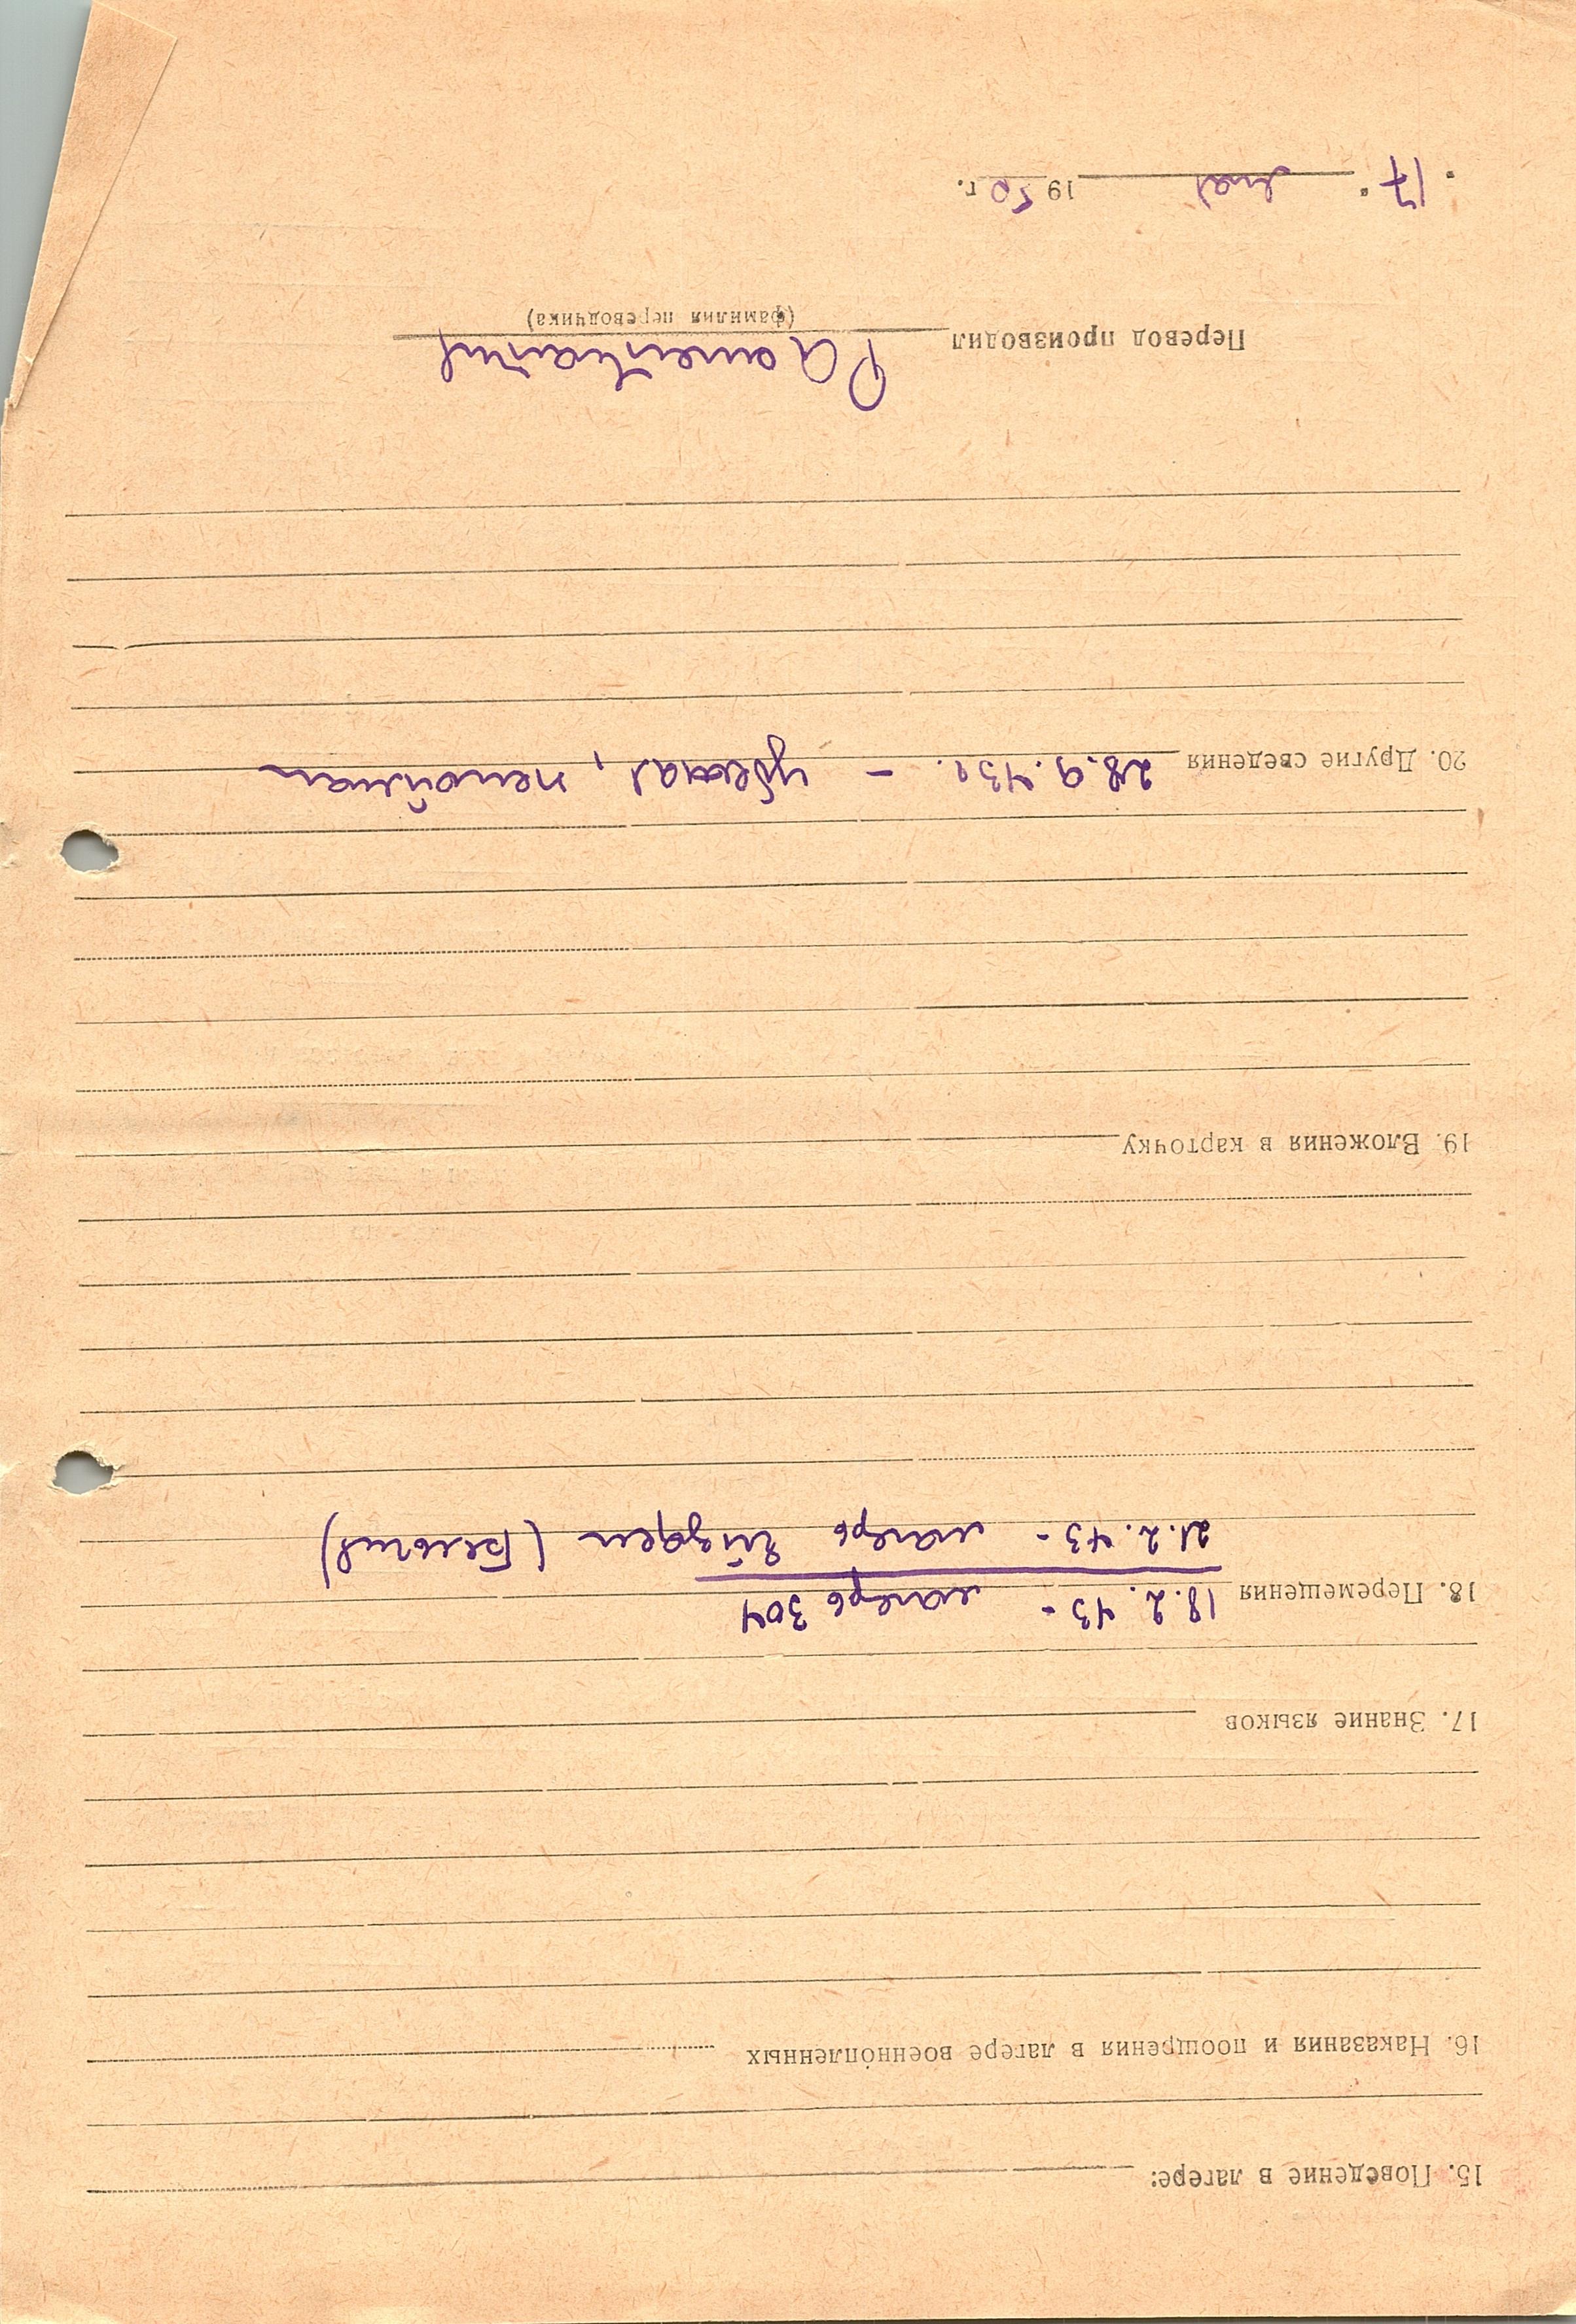 15. Поведение в лагере:
16. Наказания и поощрения в лагере военнопленных
17. Знание языков
18. Перемещения 18.2.43 - лагерь 304
21.2.43 - лагерь Эйзден (Бельгия)
19. Вложения в карточку
20. Другие сведения 28.9.43г. - убежал, непойман
Перевод производил
(фамилия переводчика)
"17" мая 1950 г.